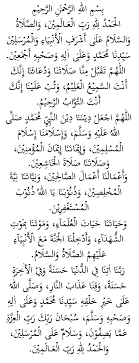 بِسْمِ اللَّهِ الرَّحْمَنِ الرَّحِيْمِ
الْحَمْدُ لِلَّهِ رَبِّ الْعَالَمِيْنَ، وَالصَّلَاةُ
وَالسَّلَامُ عَلَى أَشْرَفِ الْأَنْبِيَاءِ وَالْمُرْسَلِيْنَ
سَيِّدِنَا مُحَمَّدٍ وَعَلَى آلِهِ وَصَحْبِهِ أَجْمَعِيْنَ.
اللَّهُمَّ تَقَبَّلْ مِنَّا صَلَاتَنَا وَدُعَاءَنَا إِنَّكَ
أَنْتَ السَّمِيْعُ الْعَلِيْمُ، وَتُبْ عَلَيْنَا إِنَّكَ
أَنْتَ التَّوَّابُ الرَّحِيْمُ.
اللَّهُمَّ اجْعَلْ دِيْنَنَا دِيْنَ النَّبِيِّ مُحَمَّدٍ صَلَّى
اللَّهُ عَلَيْهِ وَسَلَّمَ، وَإِسْلَامَنَا إِسْلَامَ
الْمُسْلِمِيْنَ، وَإِيْمَانَنَا إِيْمَانَ الْمُؤْمِنِيْنَ،
وَصَلَاتَنَا صَلَاةَ الْخَاشِعِيْنَ،
وَأَعْمَالَنَا أَعْمَالَ الصَّالِحِيْنَ، وَنِيَّاتَنَا نِيَّةَ
الْمُخْلِصِيْنَ، وَذُنُوْبَنَا يَا اللَّهُ ذُنُوْبَ
الْمُسْتَغْفِرِيْنَ.
وَحَيَاتَنَا حَيَاتَ الْعُلَمَاءِ، وَمَوْتَنَا بِمَوْتِ
الشُّهَدَاءِ، وَأَدْخِلْنَا الْجَنَّةَ مَعَ الْأَنْبِيَاءِ
عَلَيْهِمُ الصَّلَاةُ وَالسَّلَامُ.
رَبَّنَا آتِنَا فِي الدُّنْيَا حَسَنَةً وَفِيْ الْآخِرَةِ
حَسَنَةً، وَقِنَا عَذَابَ النَّارِ، وَصَلَّى اللَّهُ
عَلَى خَيْرِ خَلْقِهِ سَيِّدِنَا مُحَمَّدٍ وَعَلَى آلِهِ
وَصَحْبِهِ وَسَلَّمَ، سُبْحَانَ رَبِّكَ رَبِّ الْعِزَّةِ
عَمَّا يَصِفُوْنَ، وَسَلَامٌ عَلَى الْمُرْسَلِيْنَ،
وَالْحَمْدُ لِلَّهِ رَبِّ الْعَالَمِيْنَ.